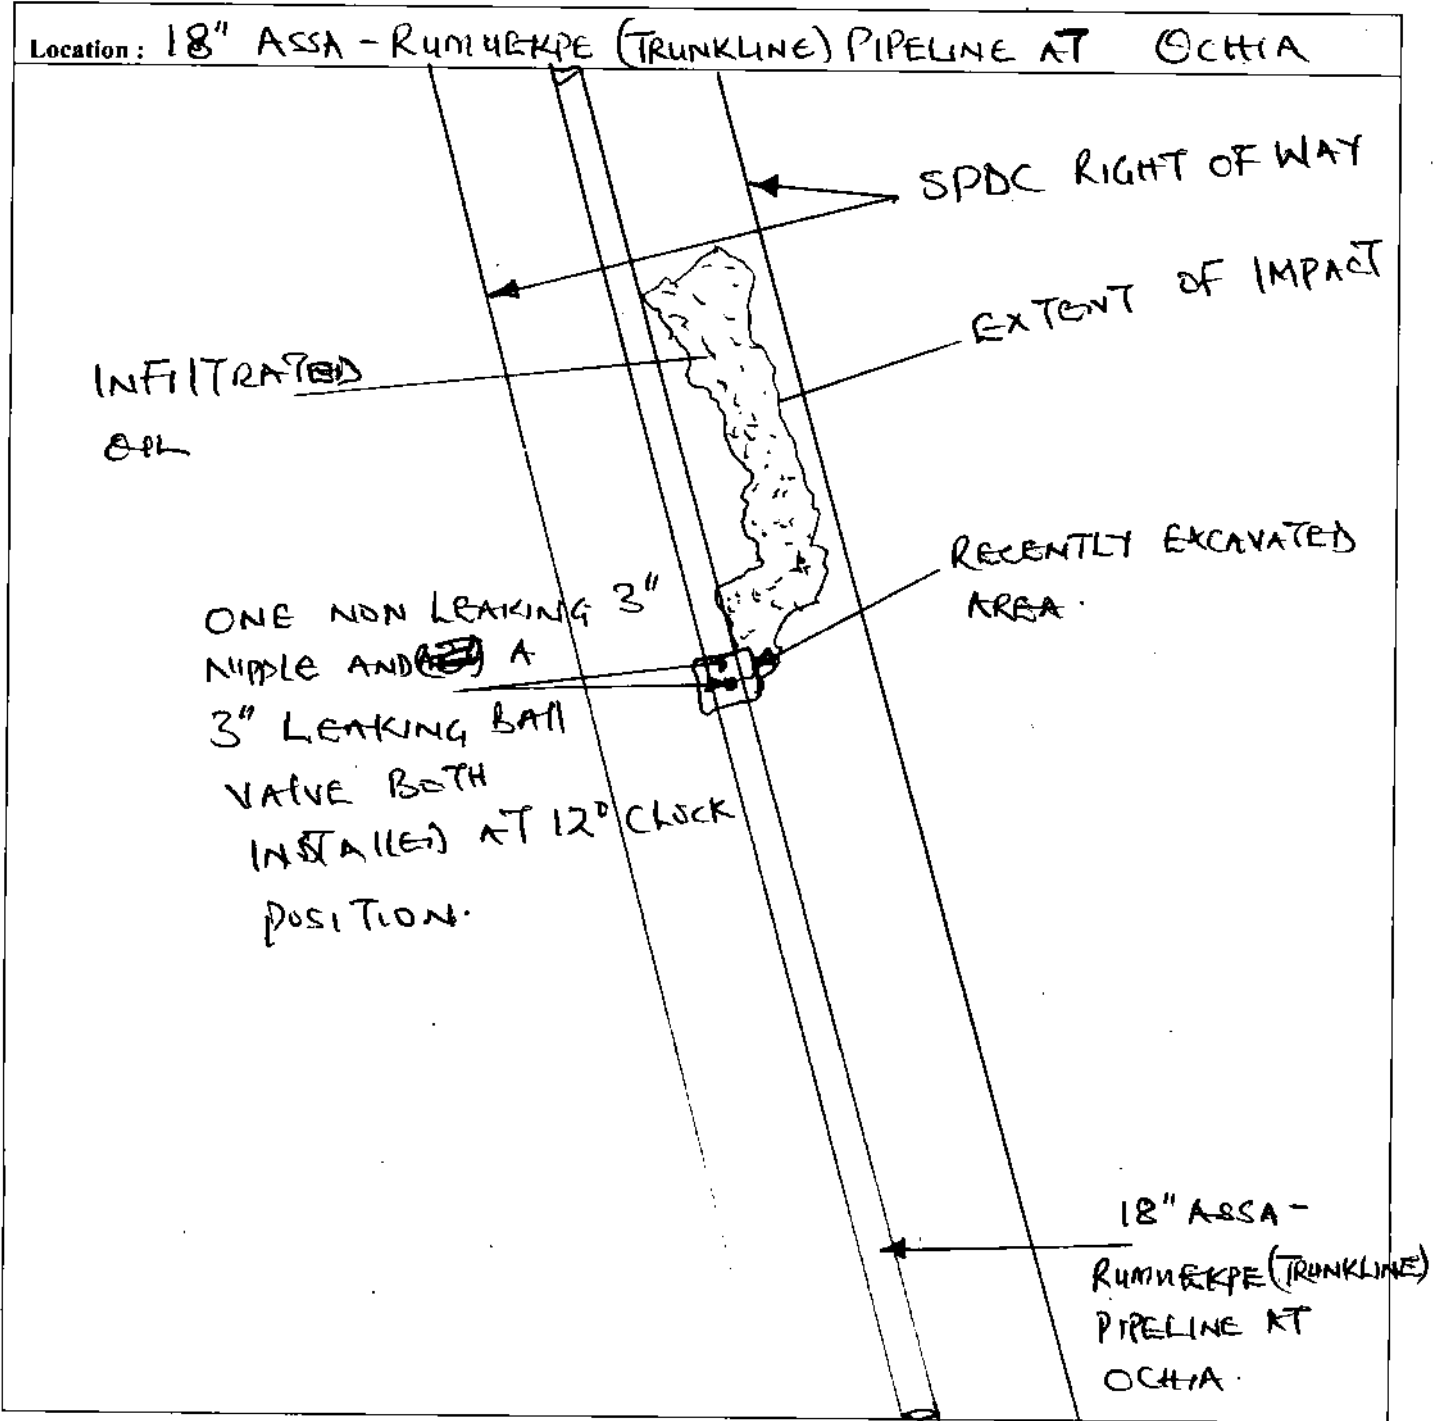 Location: 18" ASSA - RUMUEKPE (TRUNKLINE) PIPELINE AT OCHIA
SPDC RIGHT OF WAY
EXTENT OF IMPACT
INFILTRATED
OIL
RECENTLY EXCAVATED
AREA.
ONE NON LEAKING 3"
NIPPLE AND A
3" LEAKING BALL
VALVE BOTH
INSTALLED AT 12O CLOCK
POSITION.
18" ASSA -
RUMUEKPE (TRUNKLINE)
PIPELINE AT
OCHIA.